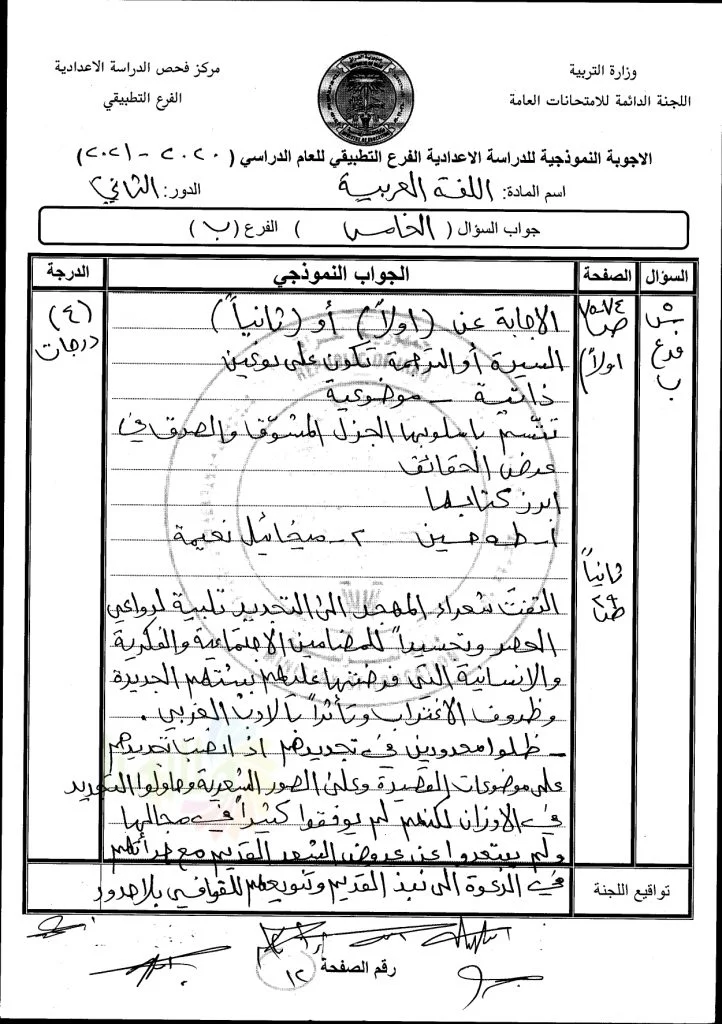 وزارة التربية
اللجنة الدائمة للامتحانات العامة
مركز فحص الدراسة الاعدادية
الفرع التطبيقي
الاجوبة النموذجية للدراسة الاعدادية الفرع التطبيقي للعام الدراسي (٢٠٢٠ - ٢٠٢١)
اسم المادة: اللغة العربية الدور: الثاني
جواب السؤال ( الخامس ) الفرع (ب)
السؤال الصفحة الجواب النموذجي الدرجة
س٥ فرع ب
ص٧٤-٧٥
اولاً
(٤) درجات
الاجابة عن (اولاً) أو (ثانياً)
السيرة أو الترجمة تكون على نوعين
ذاتية - موضوعية
تتسم باسلوبها الجزل المشوّق والصدق في
عرض الحقائق
ابرز كتابها
١- طه حسين ٢- ميخائيل نعيمة
ثانياً
ص٢٩
التفت شعراء المهجر الى التجديد تلبية لدواعي
العصر وتجسيداً للمضامين الاجتماعية والفكرية
والانسانية التي فرضتها عليهم بيئتهم الجديدة
وظروف الاغتراب وتأثراً بالادب الغربي .
- ظلوا محدودين في تجديدهم اذ انصبّ تجديدهم
على موضوعات القصيدة وعلى الصور الشعرية وحاولوا التجديد
في الاوزان لكنهم لم يوفقوا كثيراً في مجالها
ولم يبتعدوا عن عروض الشعر القديم مع جرأتهم
في الدعوة الى نبذ القديم وتنويعهم للقوافي بلا حدود
تواقيع اللجنة
رقم الصفحة
١٢